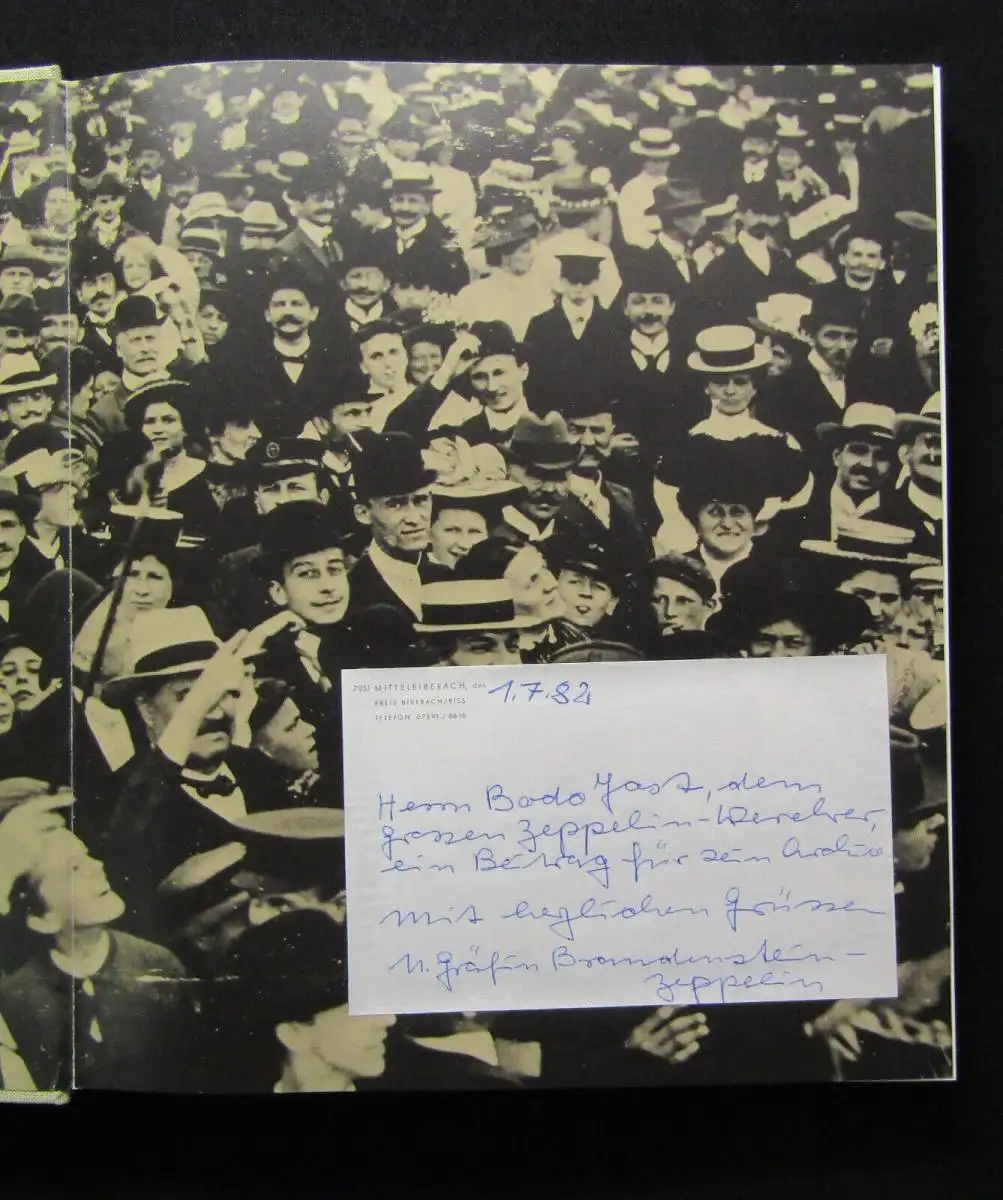 7951 MITTELBIBERACH, den 1.7.82
KREIS BIBERACH/RISS
TELEFON 07351 / 6616
Herrn Bodo Jost, dem
grossen Zeppelin-Verehrer,
ein Beitrag für sein Archiv
Mit herzlichen Grüssen
Gräfin Brandenstein-
Zeppelin